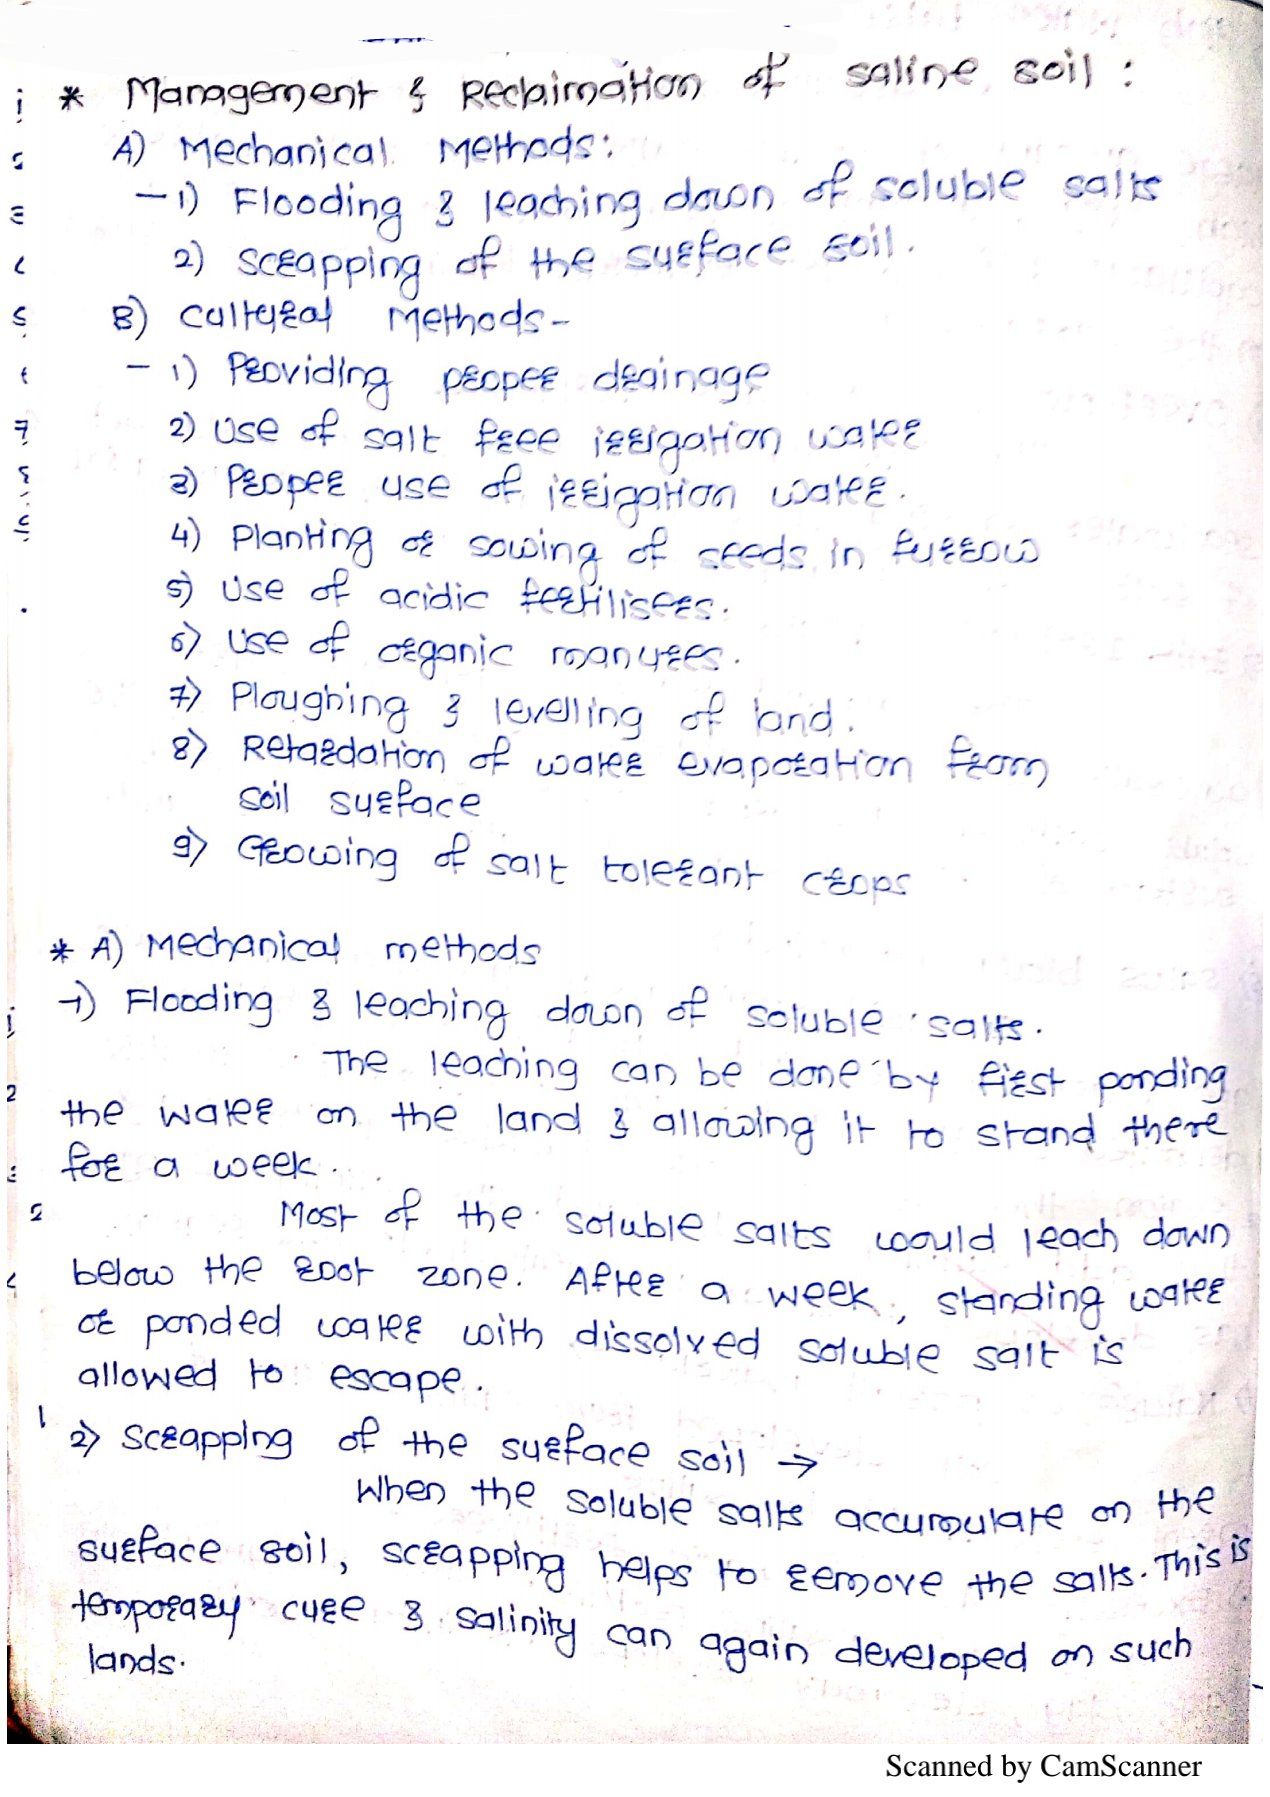 * Management & Reclaimation of saline soil :
A) Mechanical Methods:
- 1) Flooding & leaching down of soluble salts
2) Scrapping of the surface soil.
B) Cultural Methods -
- 1) Providing proper drainage
2) Use of salt free irrigation water
3) Proper use of irrigation water.
4) Planting or sowing of seeds in furrow
5) Use of acidic fertilisers.
6) Use of organic manures.
7) Ploughing & levelling of land.
8) Retardation of water evaporation from
soil surface
9) Growing of salt tolerant crops
* A) Mechanical methods
→1) Flooding & leaching down of soluble salts.
The leaching can be done by first ponding
the water on the land & allowing it to stand there
for a week.
Most of the soluble salts would leach down
below the root zone. After a week, standing water
or ponded water with dissolved soluble salt is
allowed to escape.
2) Scrapping of the surface soil →
When the soluble salts accumulate on the
surface soil, scrapping helps to remove the salts. This is
temporary cure & salinity can again developed on such
lands.
Scanned by CamScanner